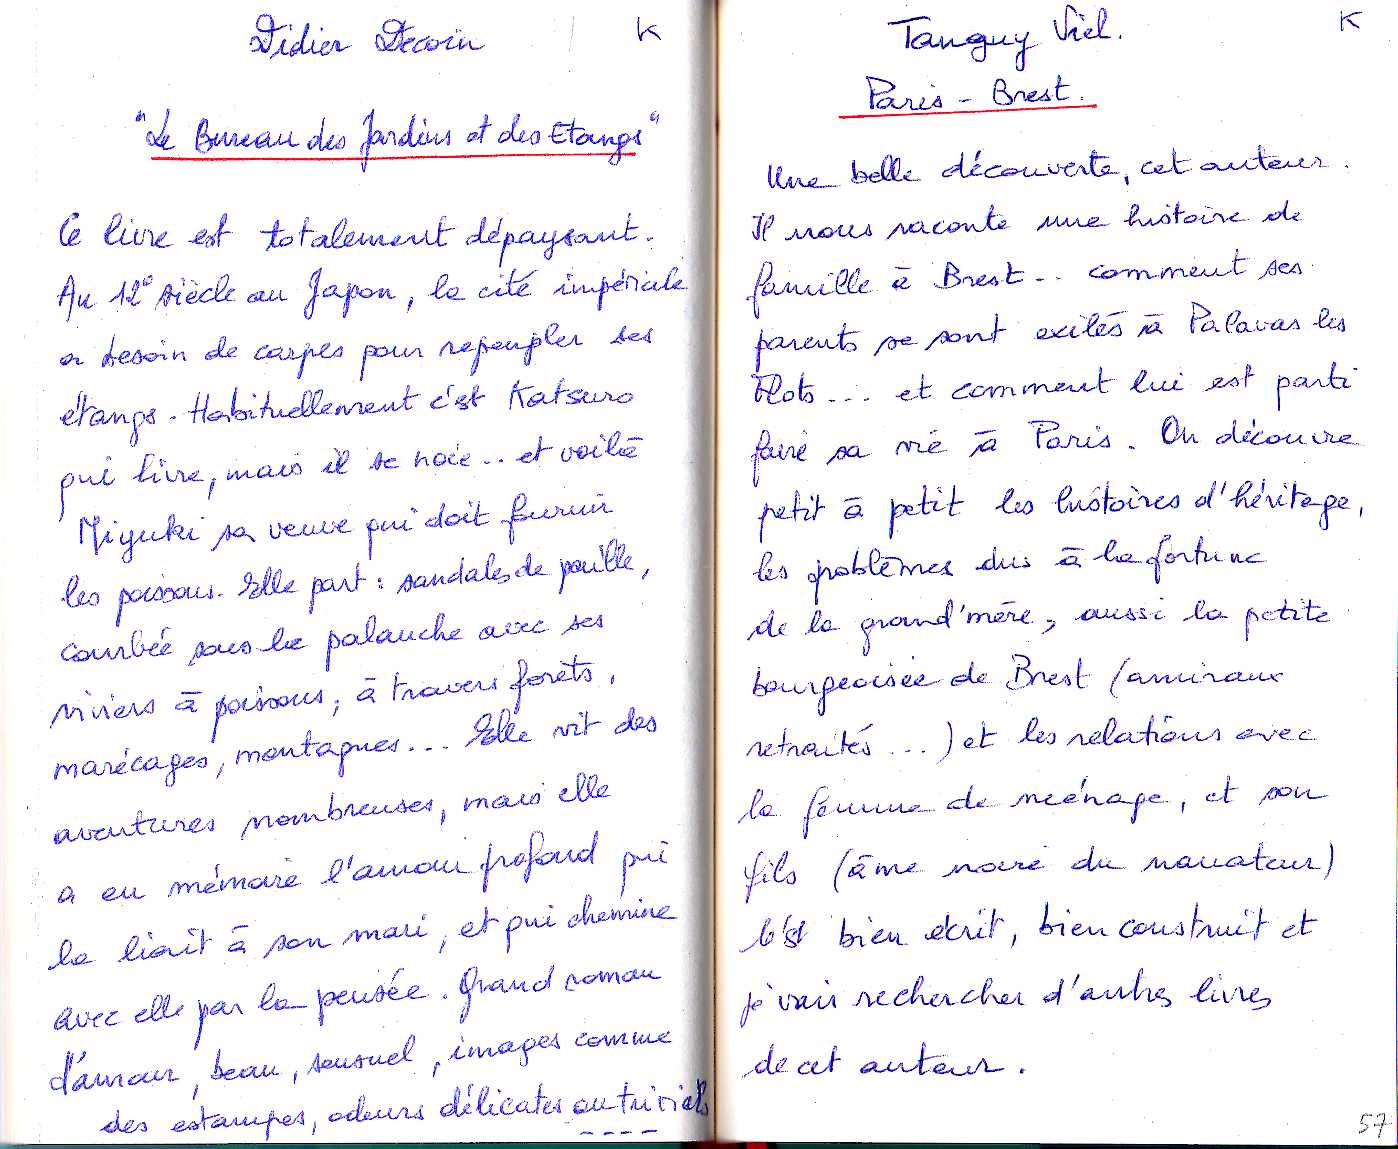 Didier Decoin
K
"Le Bureau des Jardins et des Etangs"
Ce livre est totalement dépaysant.
Au 12e siècle au Japon, la cité impériale
a besoin de carpes pour repeupler ses
étangs. Habituellement c'est Katsuro
qui livre, mais il se noie.. et voilà
Miyuki sa veuve qui doit fournir
les poissons. Elle part : sandales de paille,
courbée sous la palanche avec ses
viviers à poissons, à travers forêts,
marécages, montagnes... Elle vit des
aventures nombreuses, mais elle
a en mémoire l'amour profond qui
la liait à son mari, et qui chemine
avec elle par la pensée. Grand roman
d'amour, beau, sensuel, images comme
des estampes, odeurs délicates ou triviales
Tanguy Viel.
K
Paris - Brest.
Une belle découverte, cet auteur.
Il nous raconte une histoire de
famille à Brest... comment ses
parents se sont exilés à Palavas les
Flots... et comment lui est parti
faire sa vie à Paris. On découvre
petit à petit les histoires d'héritage,
les problèmes dus à la fortune
de la grand'mère, aussi la petite
bourgeoisie de Brest (amiraux
retraités...) et les relations avec
la femme de ménage, et son
fils (âme noire du narrateur)
C'est bien écrit, bien construit et
je vais rechercher d'autres livres
de cet auteur.
57